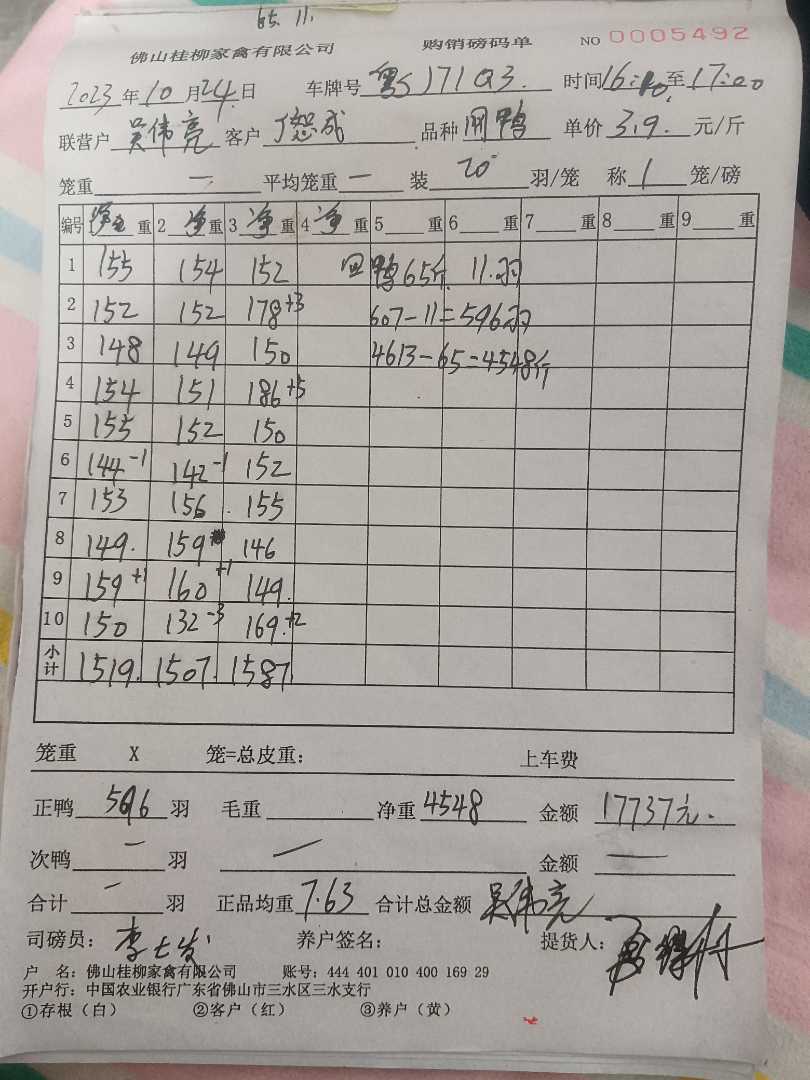 65. 11.
佛山桂柳家禽有限公司 购销磅码单 NO 0005492
2023年10月24日 车牌号 粤J171Q3. 时间16: 至17:00
联营户 吴伟亮 客户 品种 鸭 单价 3.9. 元/斤
笼重 一 平均笼重 一 装 20 羽/笼 称 1 笼/磅
编号 重 2 净 重 3 净 重 4 净 重 5 重 6 重 7 重 8 重 9 重
1 155 154 152 回鸭65斤 11.羽
2 152 152 178+3 607-11=596羽
3 148 149 150 4613-65=4548斤
4 154 151 186+5
5 155 152 150
6 144-1 142-1 152
7 153 156 155
8 149. 159 146
9 159+1 160+1 149.
10 150 132-3 169.+2
小计 1519. 1507. 1587
笼重 X 笼=总皮重： 上车费
正鸭 596 羽 毛重 净重 4548 金额 17737元.
次鸭 一 羽 一 金额 一
合计 一 羽 正品均重 7.63 合计总金额 吴伟亮
司磅员： 养户签名： 提货人：
户 名：佛山桂柳家禽有限公司 账号：444 401 010 400 169 29
开户行：中国农业银行广东省佛山市三水区三水支行
①存根（白） ②客户（红） ③养户（黄）